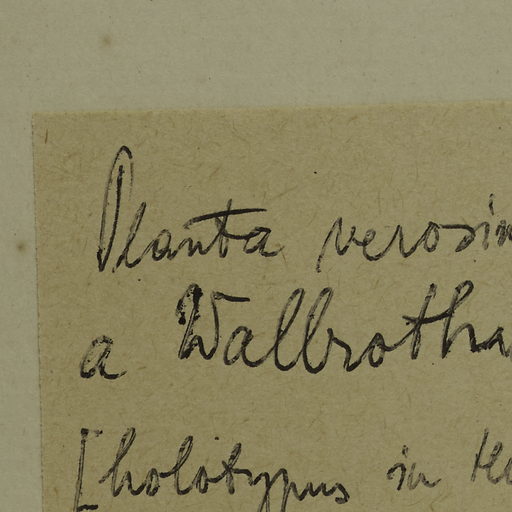 Planta verosim
a Wallrotha
[holotypus in He